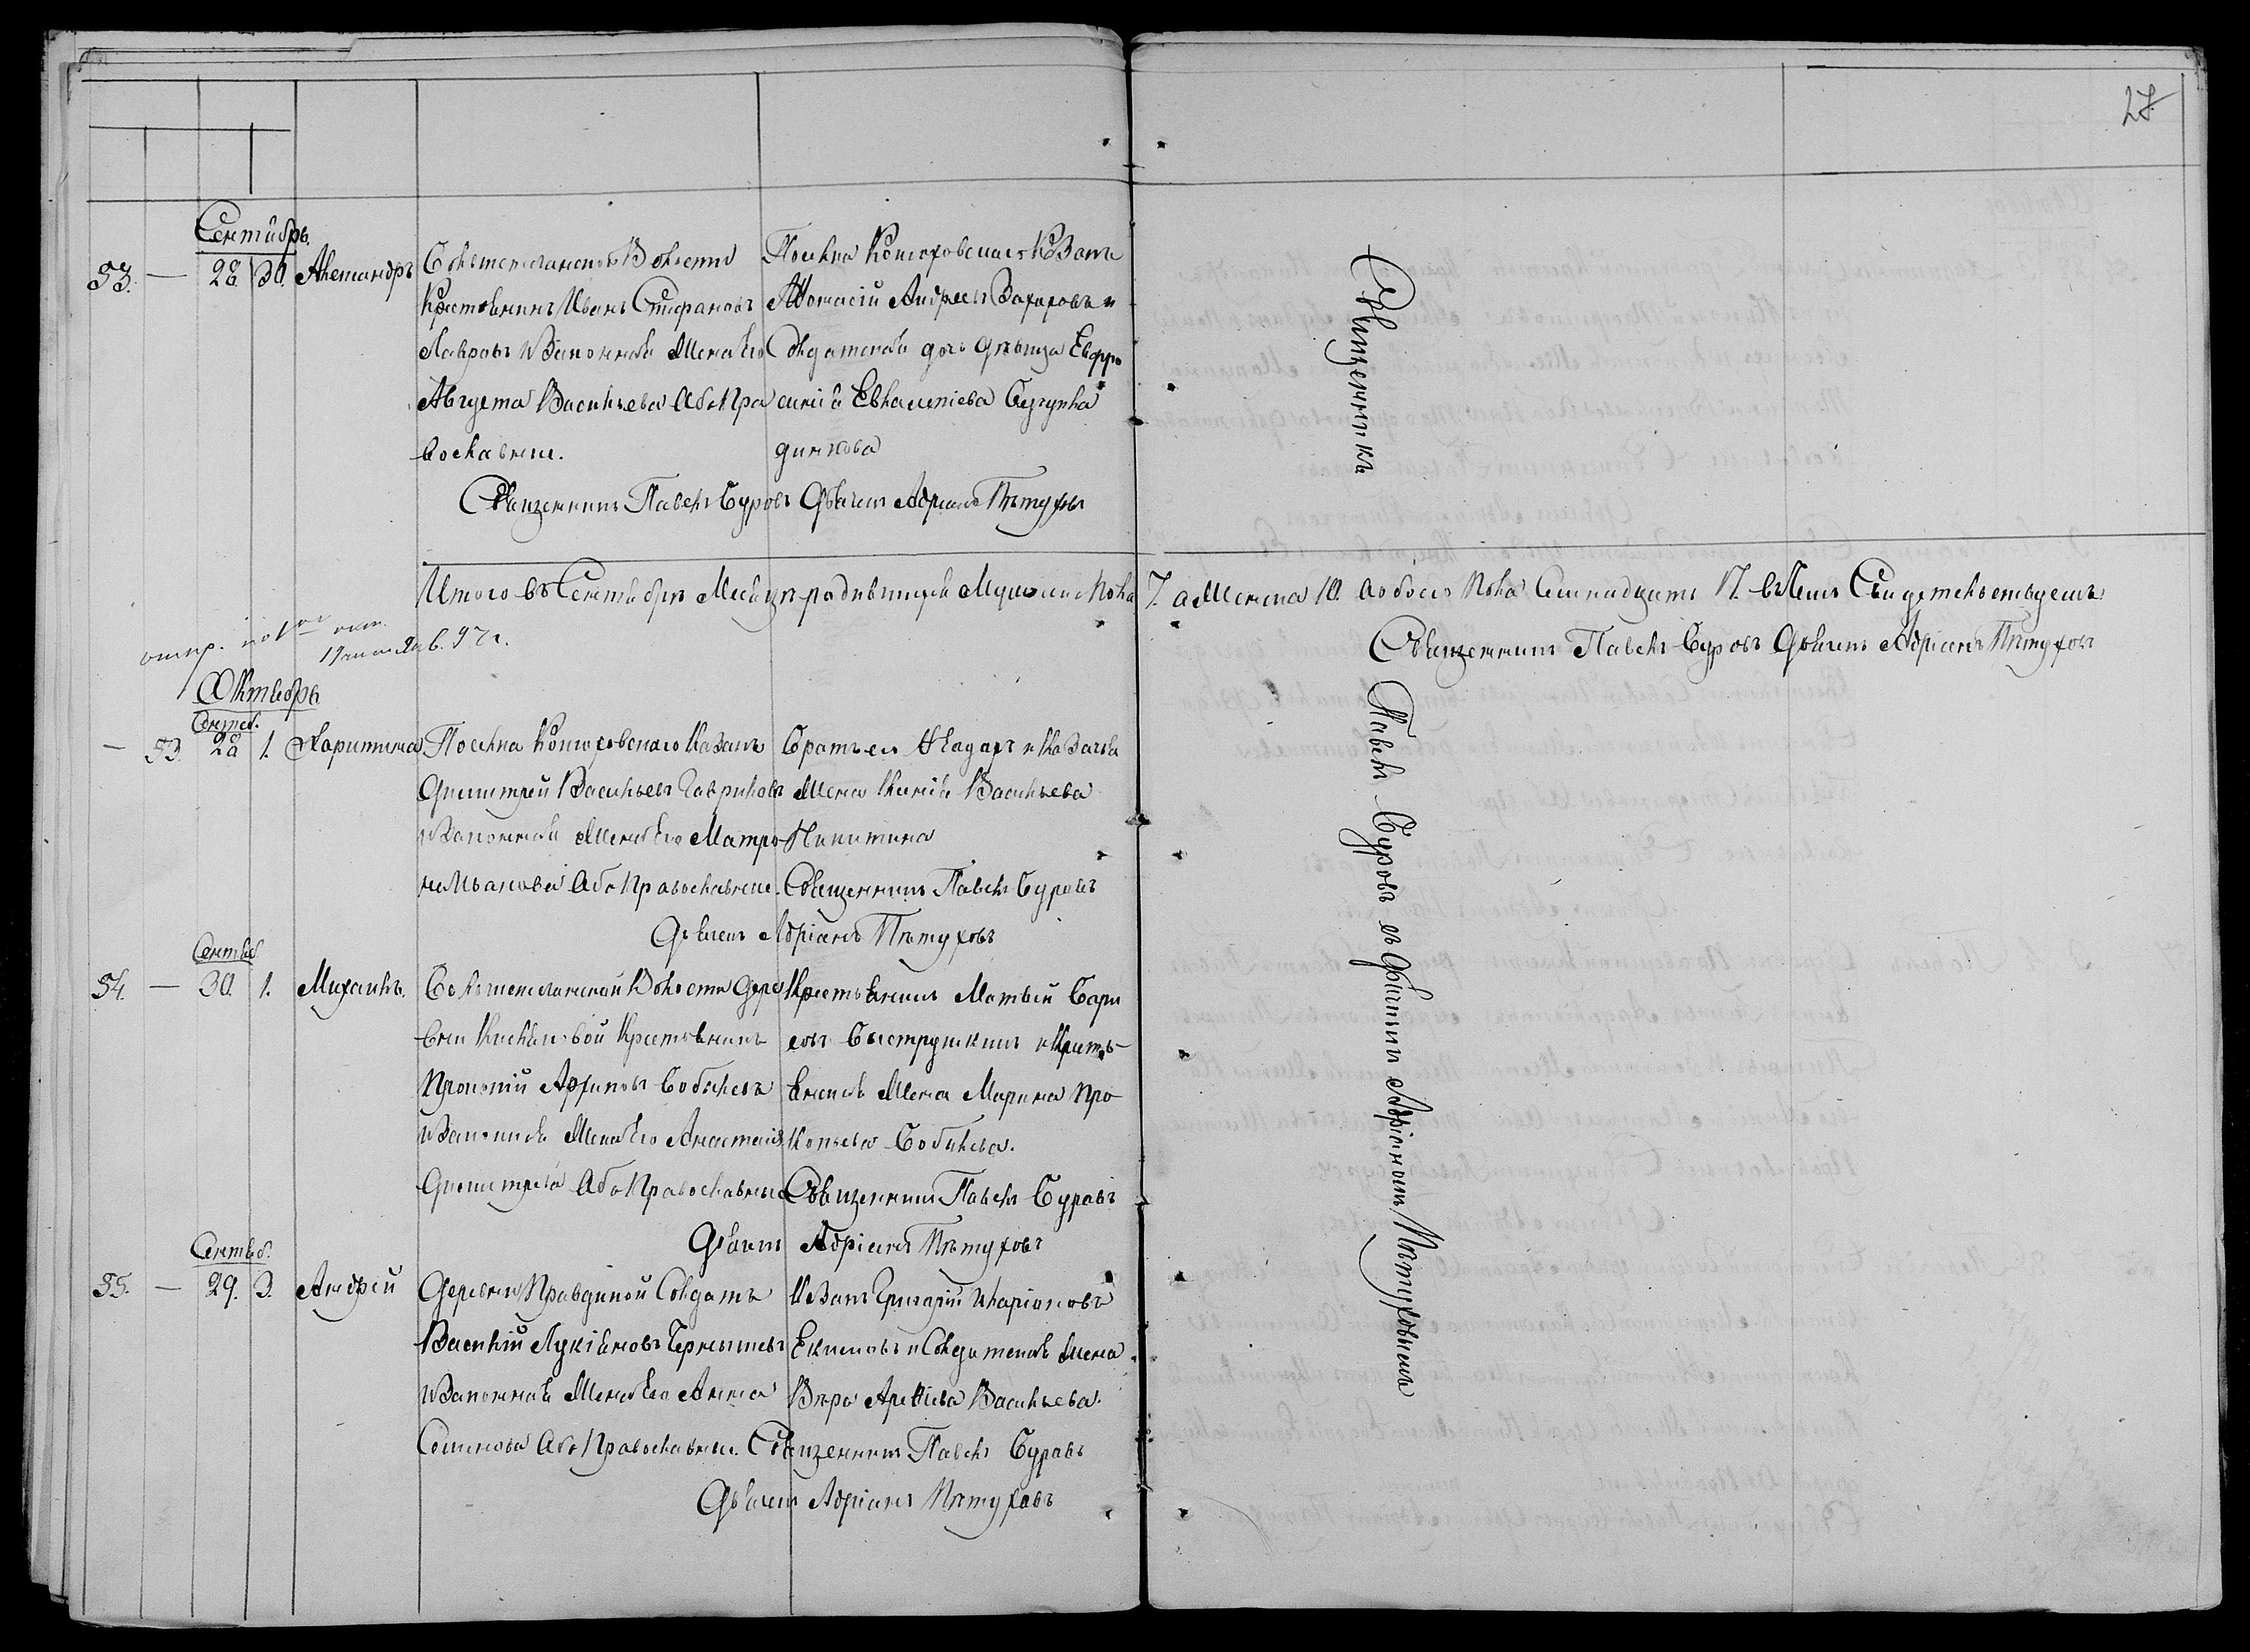 28
Сентябрь.
53. — 28. 30. Александръ
Крестьянинъ Иванъ Стефановъ
Лавровъ и Законная Жена Его
Августа Васильева Оба Пра
вославные.
Поселка Которовскаго Козакъ
Андреевъ Захаровъ и
Солдатская дочь Девица Евфро
синія
Священникъ Павелъ Буровъ Дьячекъ Адріанъ Петуховъ
Итого въ Сентябрѣ Месяцѣ родившихся Мужеска Пола 7. а Женска 10. Обоего Пола Семнадцать 17. въ чемъ Свидетельствуемъ
Священникъ Павелъ Буровъ Дьячекъ Адріанъ Петуховъ
Октябрь
Сентяб.
— 53. 28 1. Харитина
Поселка Которовскаго Казакъ
Димитрей Васильевъ Гавриловъ
и Законная Жена Его Матро
на Иванова Оба Православные.
Братъ ея и Казачья
Жена Васильева
Никитина
Священникъ Павелъ Буровъ
Дьячекъ Адріанъ Петуховъ
Сентяб.
54. — 30. 1. Михаилъ.
Волости Дере
вни Крестьянинъ
и Законная Жена Его Анастасія
Димитрева Оба Православные
Крестьянинъ Матвей Бари
совъ Быструшкинъ и Кресть
янская Жена Марина Про
копьева Бобылева.
Священникъ Павелъ Буровъ
Дьячекъ Адріанъ Петуховъ
Сентяб.
55. — 29. 3. Андрей
Деревни Правдиной Солдатъ
Василій Лукіановъ Чернышевъ
и Законная Жена Его Анна
Семенова Оба Православные.
Казакъ Григорій Иларіоновъ
Екимовъ и Солдатская Жена
Вера Васильева.
Священникъ Павелъ Буровъ
Дьячекъ Адріанъ Петуховъ
Священникъ Павелъ Буровъ съ Дьячкомъ Адріаномъ Петуховымъ